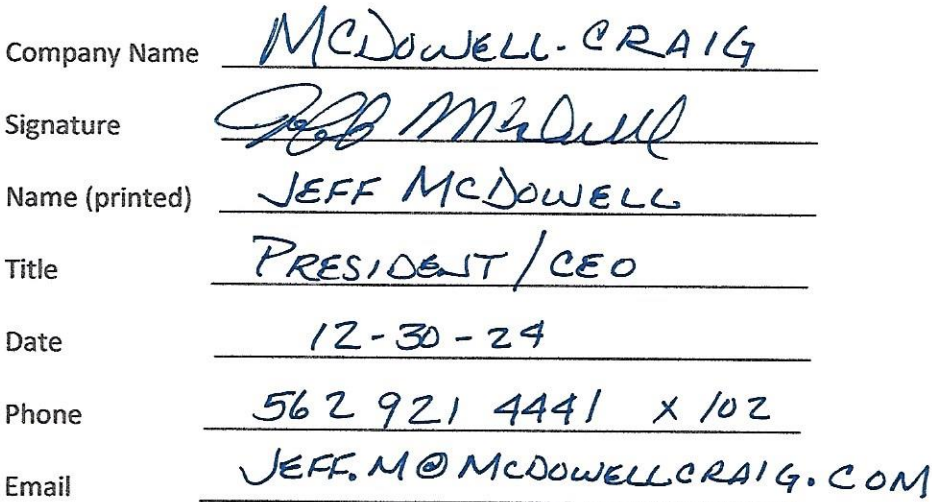 Company Name McDOWELL-CRAIG
Signature Jeff McDowell
Name (printed) JEFF McDOWELL
Title PRESIDENT/CEO
Date 12-30-24
Phone 562 921 4441 x 102
Email JEFF.M@McDOWELLCRAIG.COM